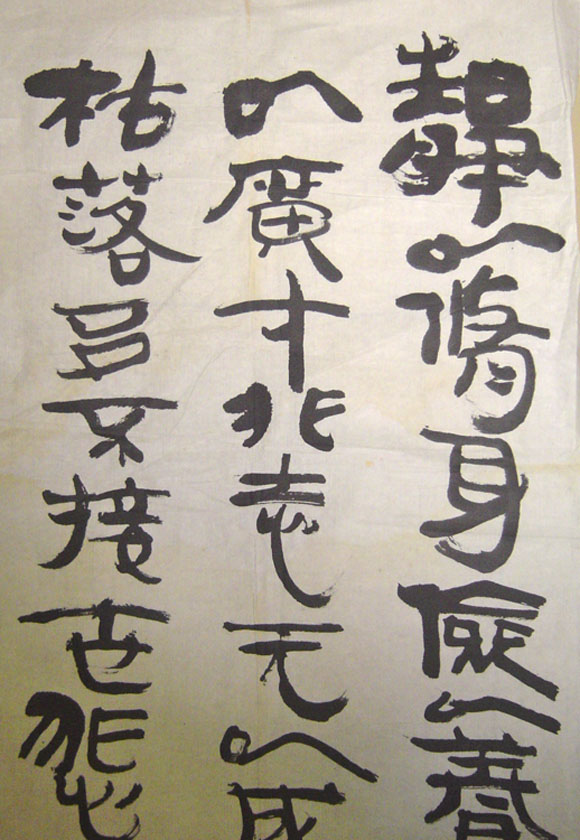 靜以脩身儉以養
以廣才非志无以成
枯落多不接世悲